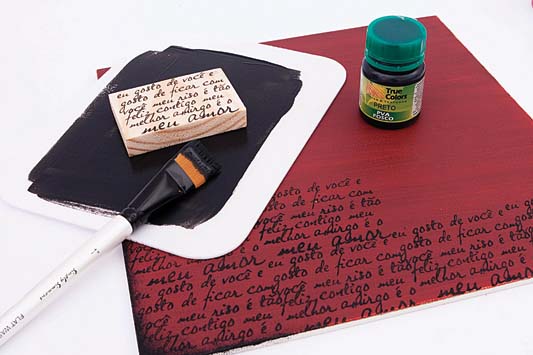 eu gosto de você e
gosto de ficar com
você meu riso é tão
feliz contigo meu
melhor amigo é o
meu amor
True
Colors
PRETO
PVA
FOSCO
gosto de você e
gosto de ficar com
meu riso é tão
feliz contigo meu
melhor amigo é o
meu amor
gosto de você e
gosto de ficar com
você meu riso é tão
feliz contigo meu
melhor amigo é o
gosto de você e
gosto de ficar com
você meu riso é tão
feliz contigo meu
melhor amigo é o
meu amor
FLAT